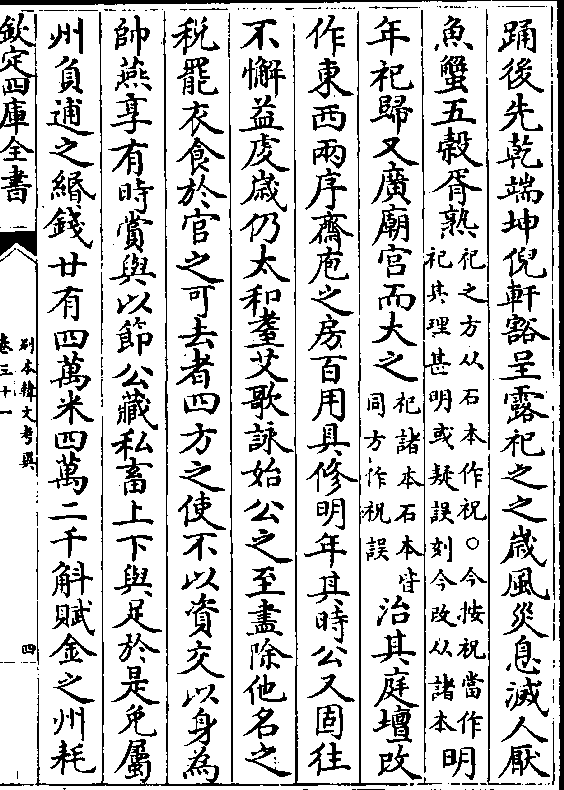 踊後先乾端坤倪軒豁呈露祀之之歲風災息滅人厭
魚蟹五穀胥熟祀之方从石本作祝○今按祝當作
祀其理甚明或疑誤刻今改从諸本明
年祀歸又廣廟宫而大之祀諸本石本皆
同方作祝誤治其庭壇改
作東西兩序齋庖之房百用具修明年其時公又固往
不懈益虔歲仍大和耋艾歌詠始公之至盡除他名之
稅罷衣食於官之可去者四方之使不以資交以身為
帥燕享有時賞與以節公藏私畜上下與足於是免屬
州負逋之緡錢廿有四萬米四萬二千斛賦金之州耗
欽定四庫全書
别本韓文考異
卷三十一
四